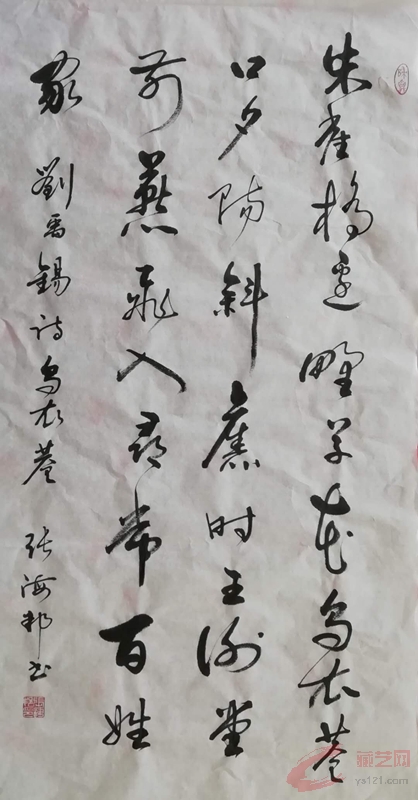 朱雀橋邊野草花烏衣巷
口夕陽斜舊时王谢堂
前燕飛入尋常百姓
家 劉禹錫诗烏衣巷 张海邦书
藏艺网
ys121.com